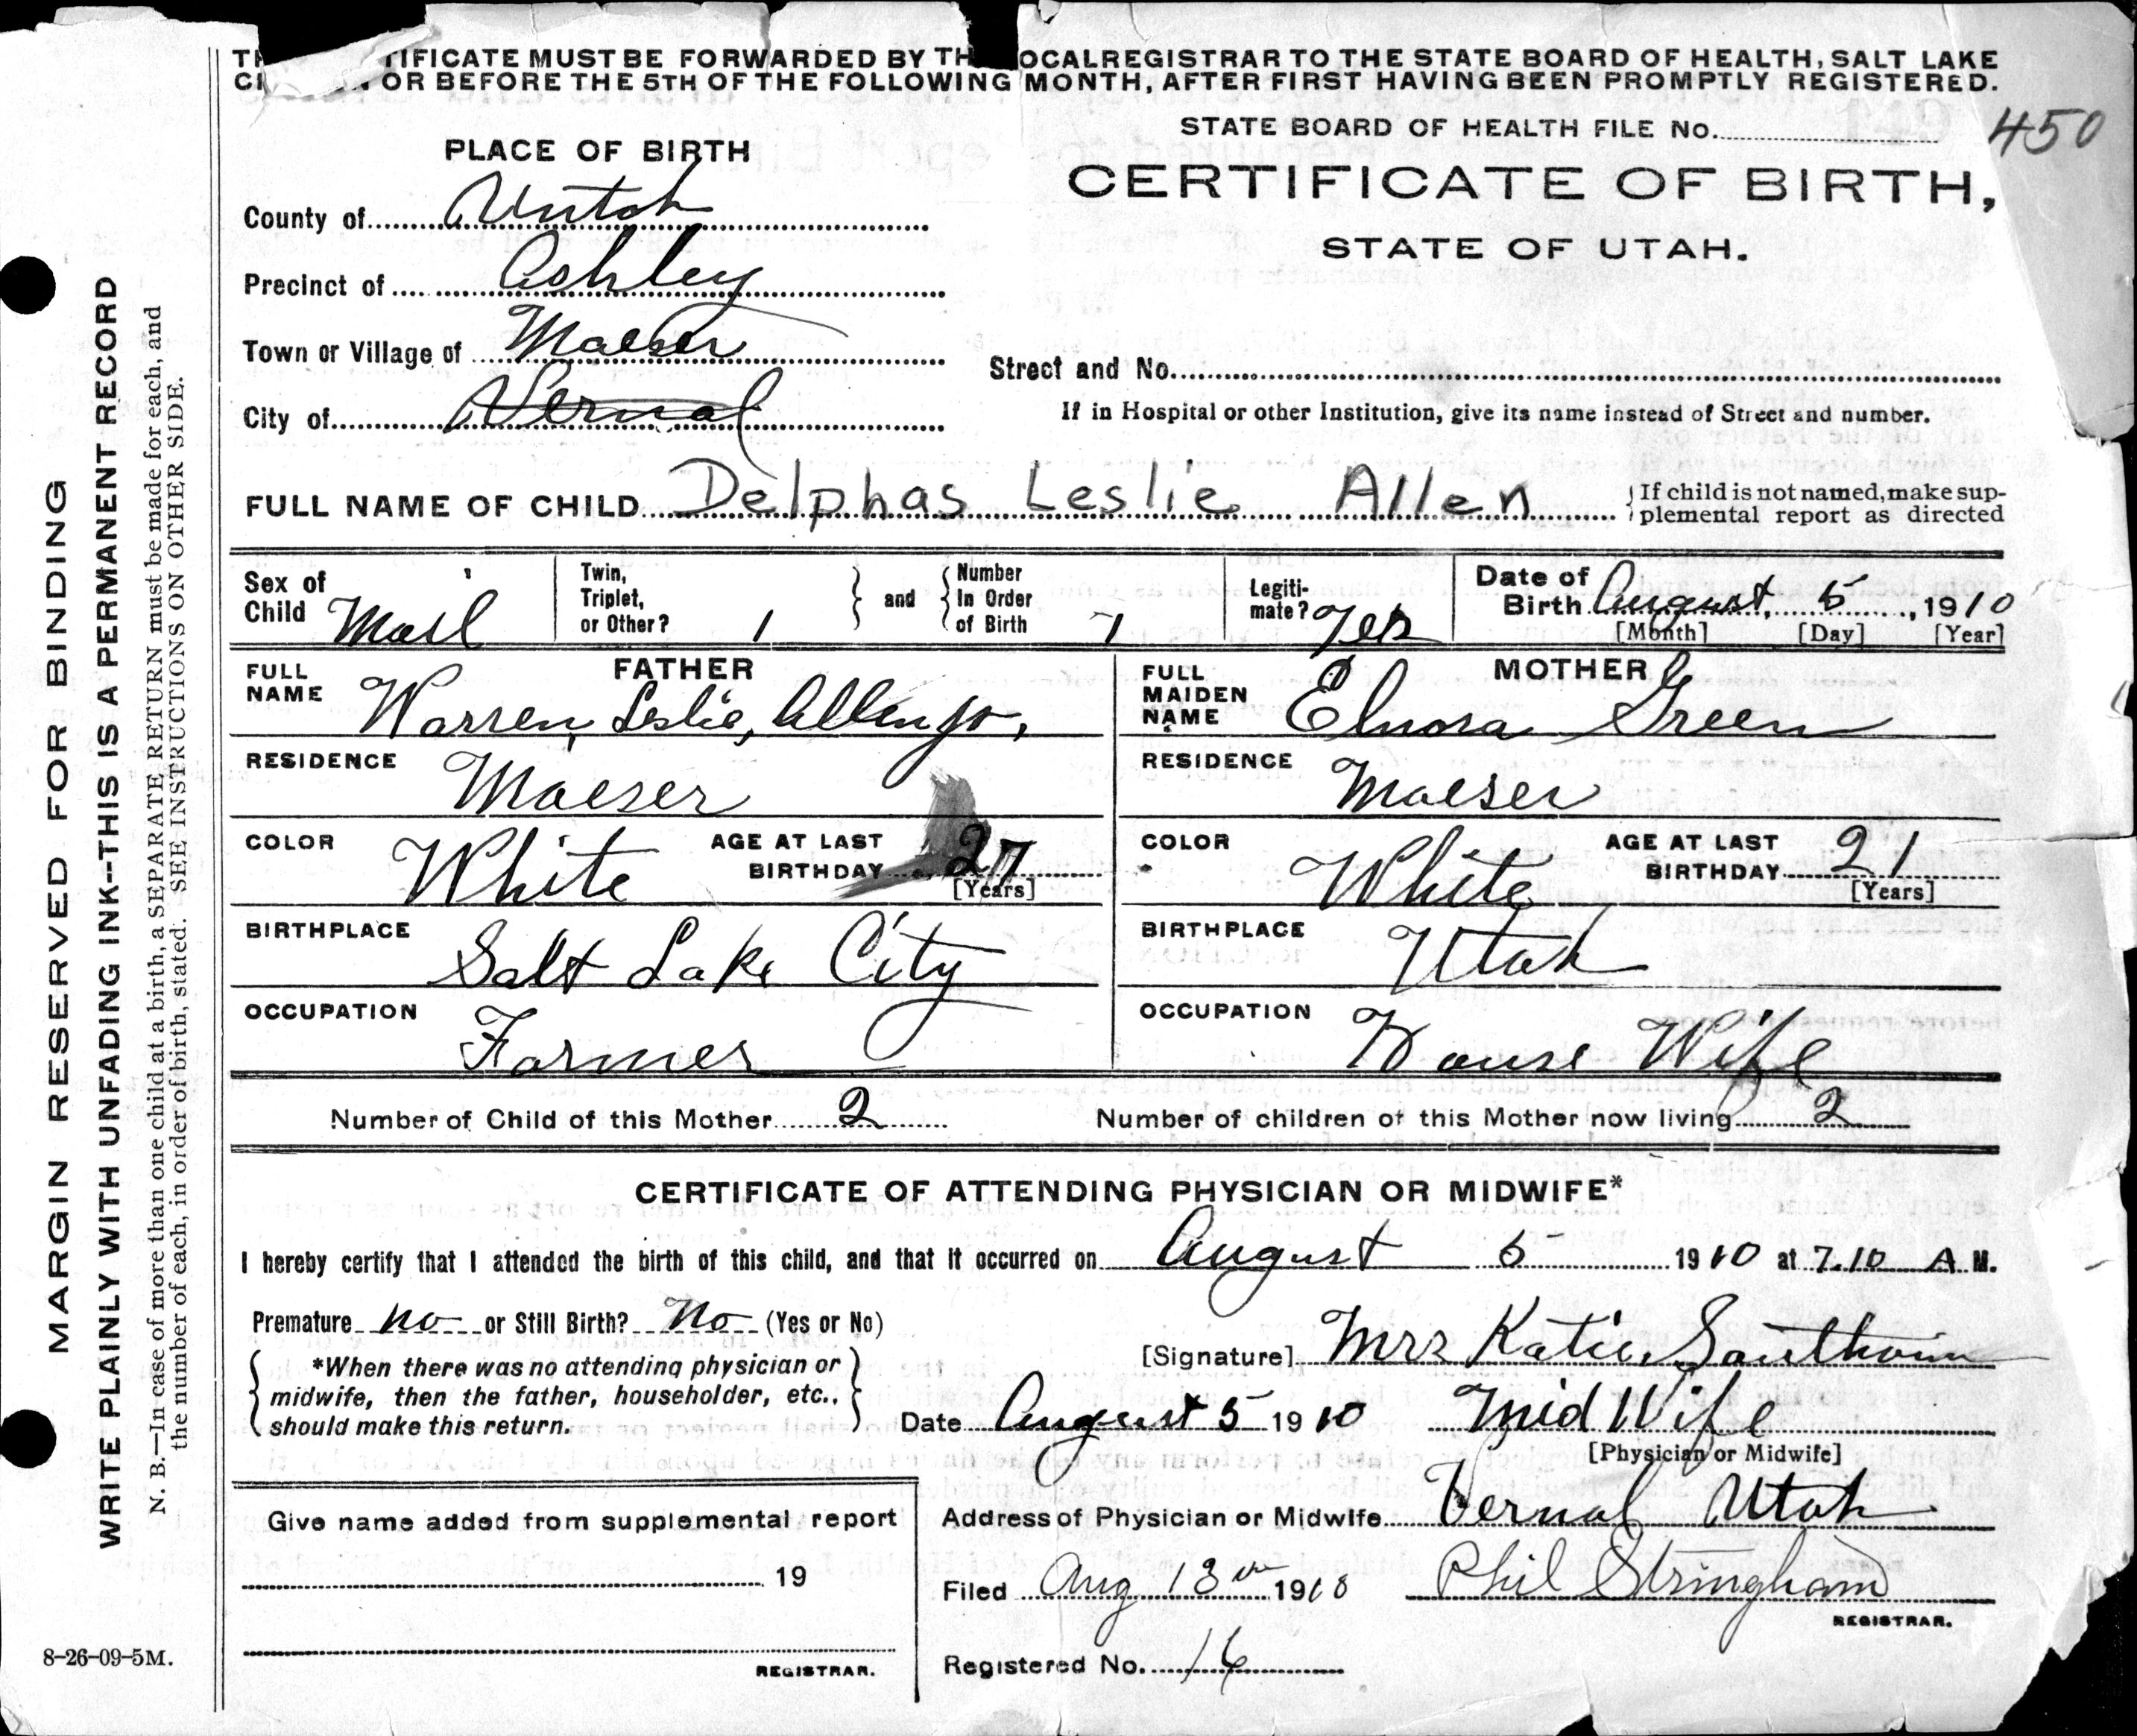 TH IFICATE MUST BE FORWARDED BY TH OCAL REGISTRAR TO THE STATE BOARD OF HEALTH, SALT LAKE
CI OR BEFORE THE 5TH OF THE FOLLOWING MONTH, AFTER FIRST HAVING BEEN PROMPTLY REGISTERED.
STATE BOARD OF HEALTH FILE No. 450
PLACE OF BIRTH
CERTIFICATE OF BIRTH,
STATE OF UTAH.
County of Uintah
Precinct of Ashley
Town or Village of Maeser
Street and No.
City of Vernal
If in Hospital or other Institution, give its name instead of Street and number.
FULL NAME OF CHILD Delphas Leslie Allen
If child is not named, make sup-
plemental report as directed
Sex of Child Mail
Twin, Triplet, or Other? 1
and
Number In Order of Birth 1
Legiti-mate? Yes
Date of Birth August, 5, 1910
[Month] [Day] [Year]
FATHER
FULL NAME Warren, Leslie, Allen jr,
RESIDENCE Maeser
COLOR White
AGE AT LAST BIRTHDAY 27
[Years]
BIRTHPLACE Salt Lake City
OCCUPATION Farmer
MOTHER
FULL MAIDEN NAME Elnora Green
RESIDENCE Maeser
COLOR White
AGE AT LAST BIRTHDAY 21
[Years]
BIRTHPLACE Utah
OCCUPATION House Wife
Number of Child of this Mother 2
Number of children of this Mother now living 2
CERTIFICATE OF ATTENDING PHYSICIAN OR MIDWIFE*
I hereby certify that I attended the birth of this child, and that it occurred on August 5 1910 at 7.10 A M.
Premature no or Still Birth? No (Yes or No)
*When there was no attending physician or
midwife, then the father, householder, etc.,
should make this return.
[Signature] Mrs Katie
Date August 5 1910 Mid Wife
[Physician or Midwife]
Address of Physician or Midwife Vernal Utah
Filed Aug 13 1910 Phil Stringham
REGISTRAR.
Registered No. 16
Give name added from supplemental report
19
REGISTRAR.
MARGIN RESERVED FOR BINDING
WRITE PLAINLY WITH UNFADING INK--THIS IS A PERMANENT RECORD
N. B.—In case of more than one child at a birth, a SEPARATE RETURN must be made for each, and
the number of each, in order of birth, stated. SEE INSTRUCTIONS ON OTHER SIDE.
8-26-09-5M.